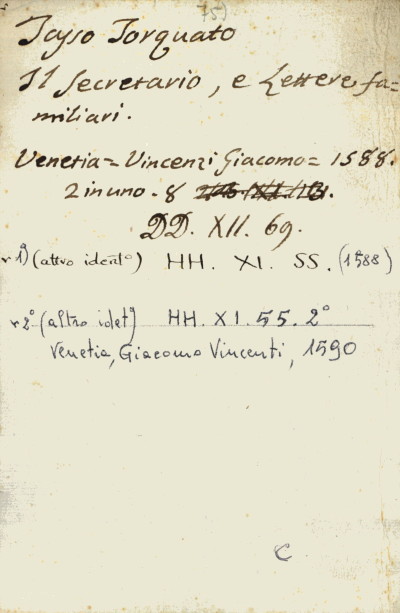 75)
Tasso Torquato
Il Secretario, e Lettere fa=
miliari.
Venetia = Vincenzi Giacomo = 1588.
2 in uno. 8
DD. XII. 69.
1°) (altro ident°) HH. XI. SS. (1588)
2° (altro idet°) HH. XI. 55. 2°
Venetia, Giacomo Vincenti, 1590
C